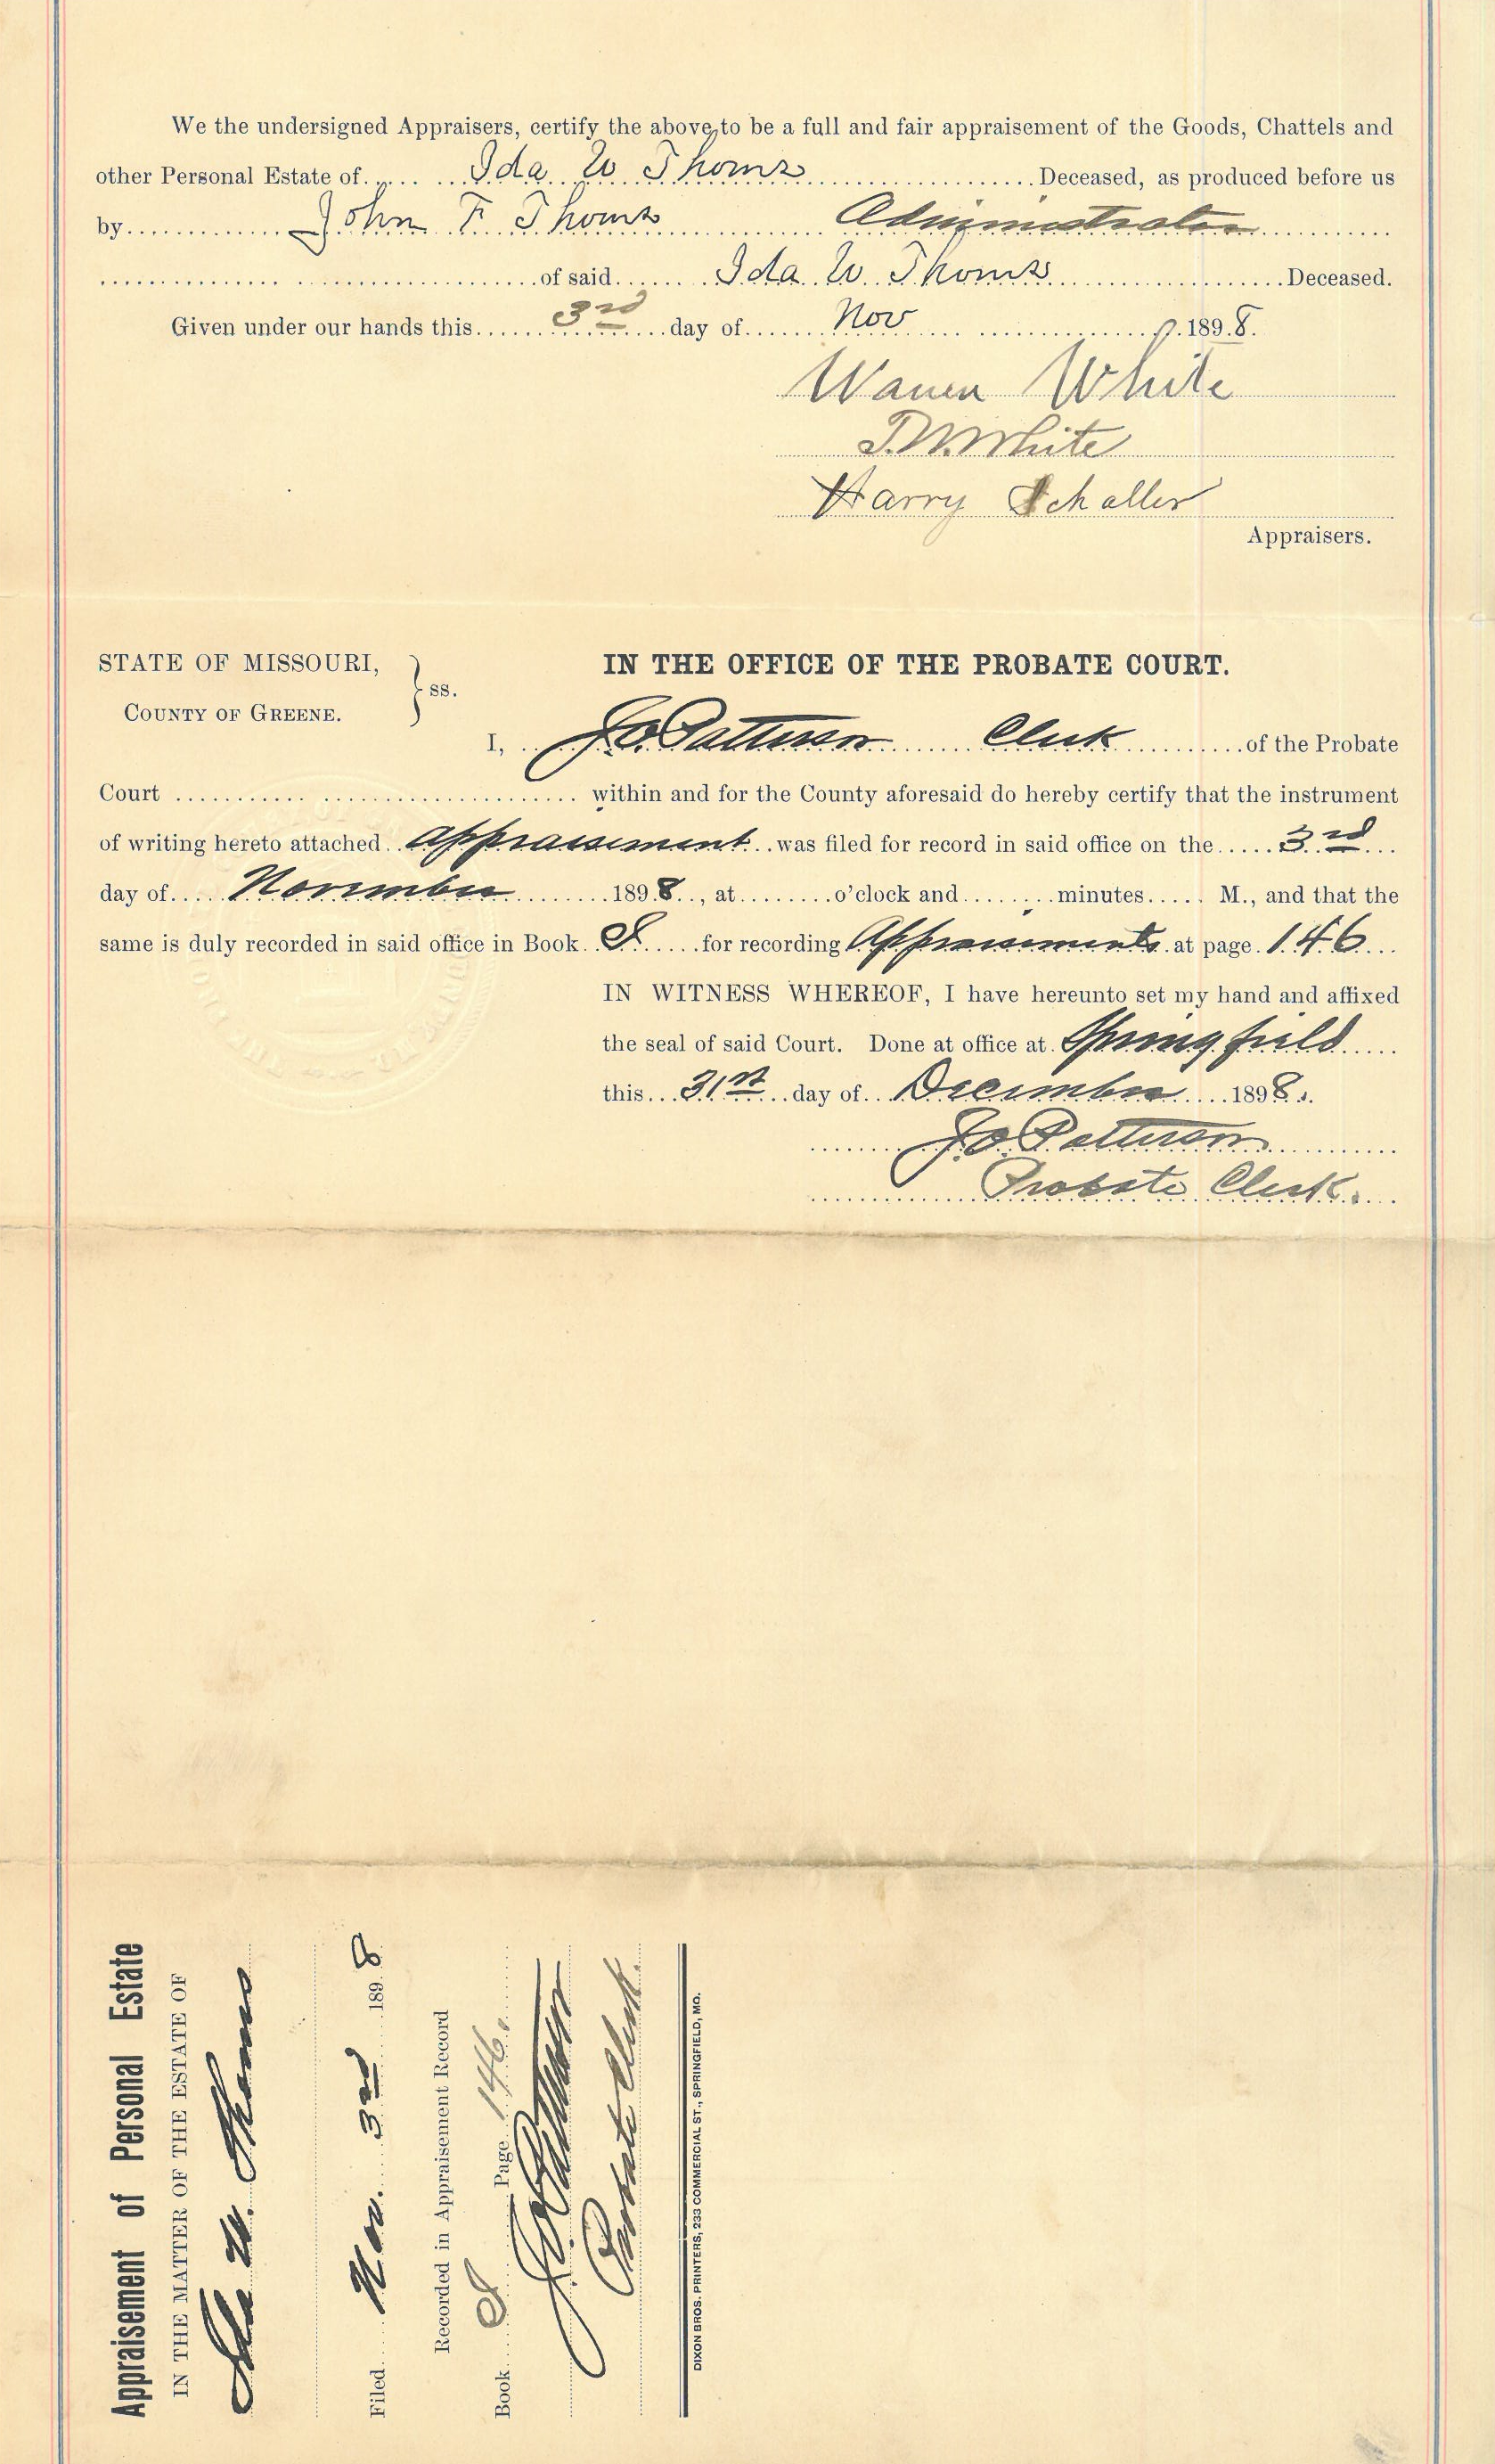 We the undersigned Appraisers, certify the above, to be a full and fair appraisement of the Goods, Chattels and
other Personal Estate of Ida W Thoms Deceased, as produced before us
by John F Thoms Administrator
of said Ida W. Thoms Deceased.
Given under our hands this 3rd day of Nov 1898.
Warren White
T.M. White
Harry Schaller
Appraisers.
STATE OF MISSOURI,
COUNTY OF GREENE.
ss.
IN THE OFFICE OF THE PROBATE COURT.
I, J.O. Patterson Clerk of the Probate
Court within and for the County aforesaid do hereby certify that the instrument
of writing hereto attached appraisement was filed for record in said office on the 3rd
day of November 1898, at o'clock and minutes M., and that the
same is duly recorded in said office in Book S for recording Appraisements at page 146
IN WITNESS WHEREOF, I have hereunto set my hand and affixed
the seal of said Court. Done at office at Springfield
this 31st day of December 1898.
J.O. Patterson
Probate Clerk.
Appraisement of Personal Estate
IN THE MATTER OF THE ESTATE OF
Ida W. Thoms
Filed Nov. 3rd 1898
Recorded in Appraisement Record
Book S Page 146.
J.O. Patterson
Probate Clerk.
DIXON BROS. PRINTERS, 233 COMMERCIAL ST., SPRINGFIELD, MO.